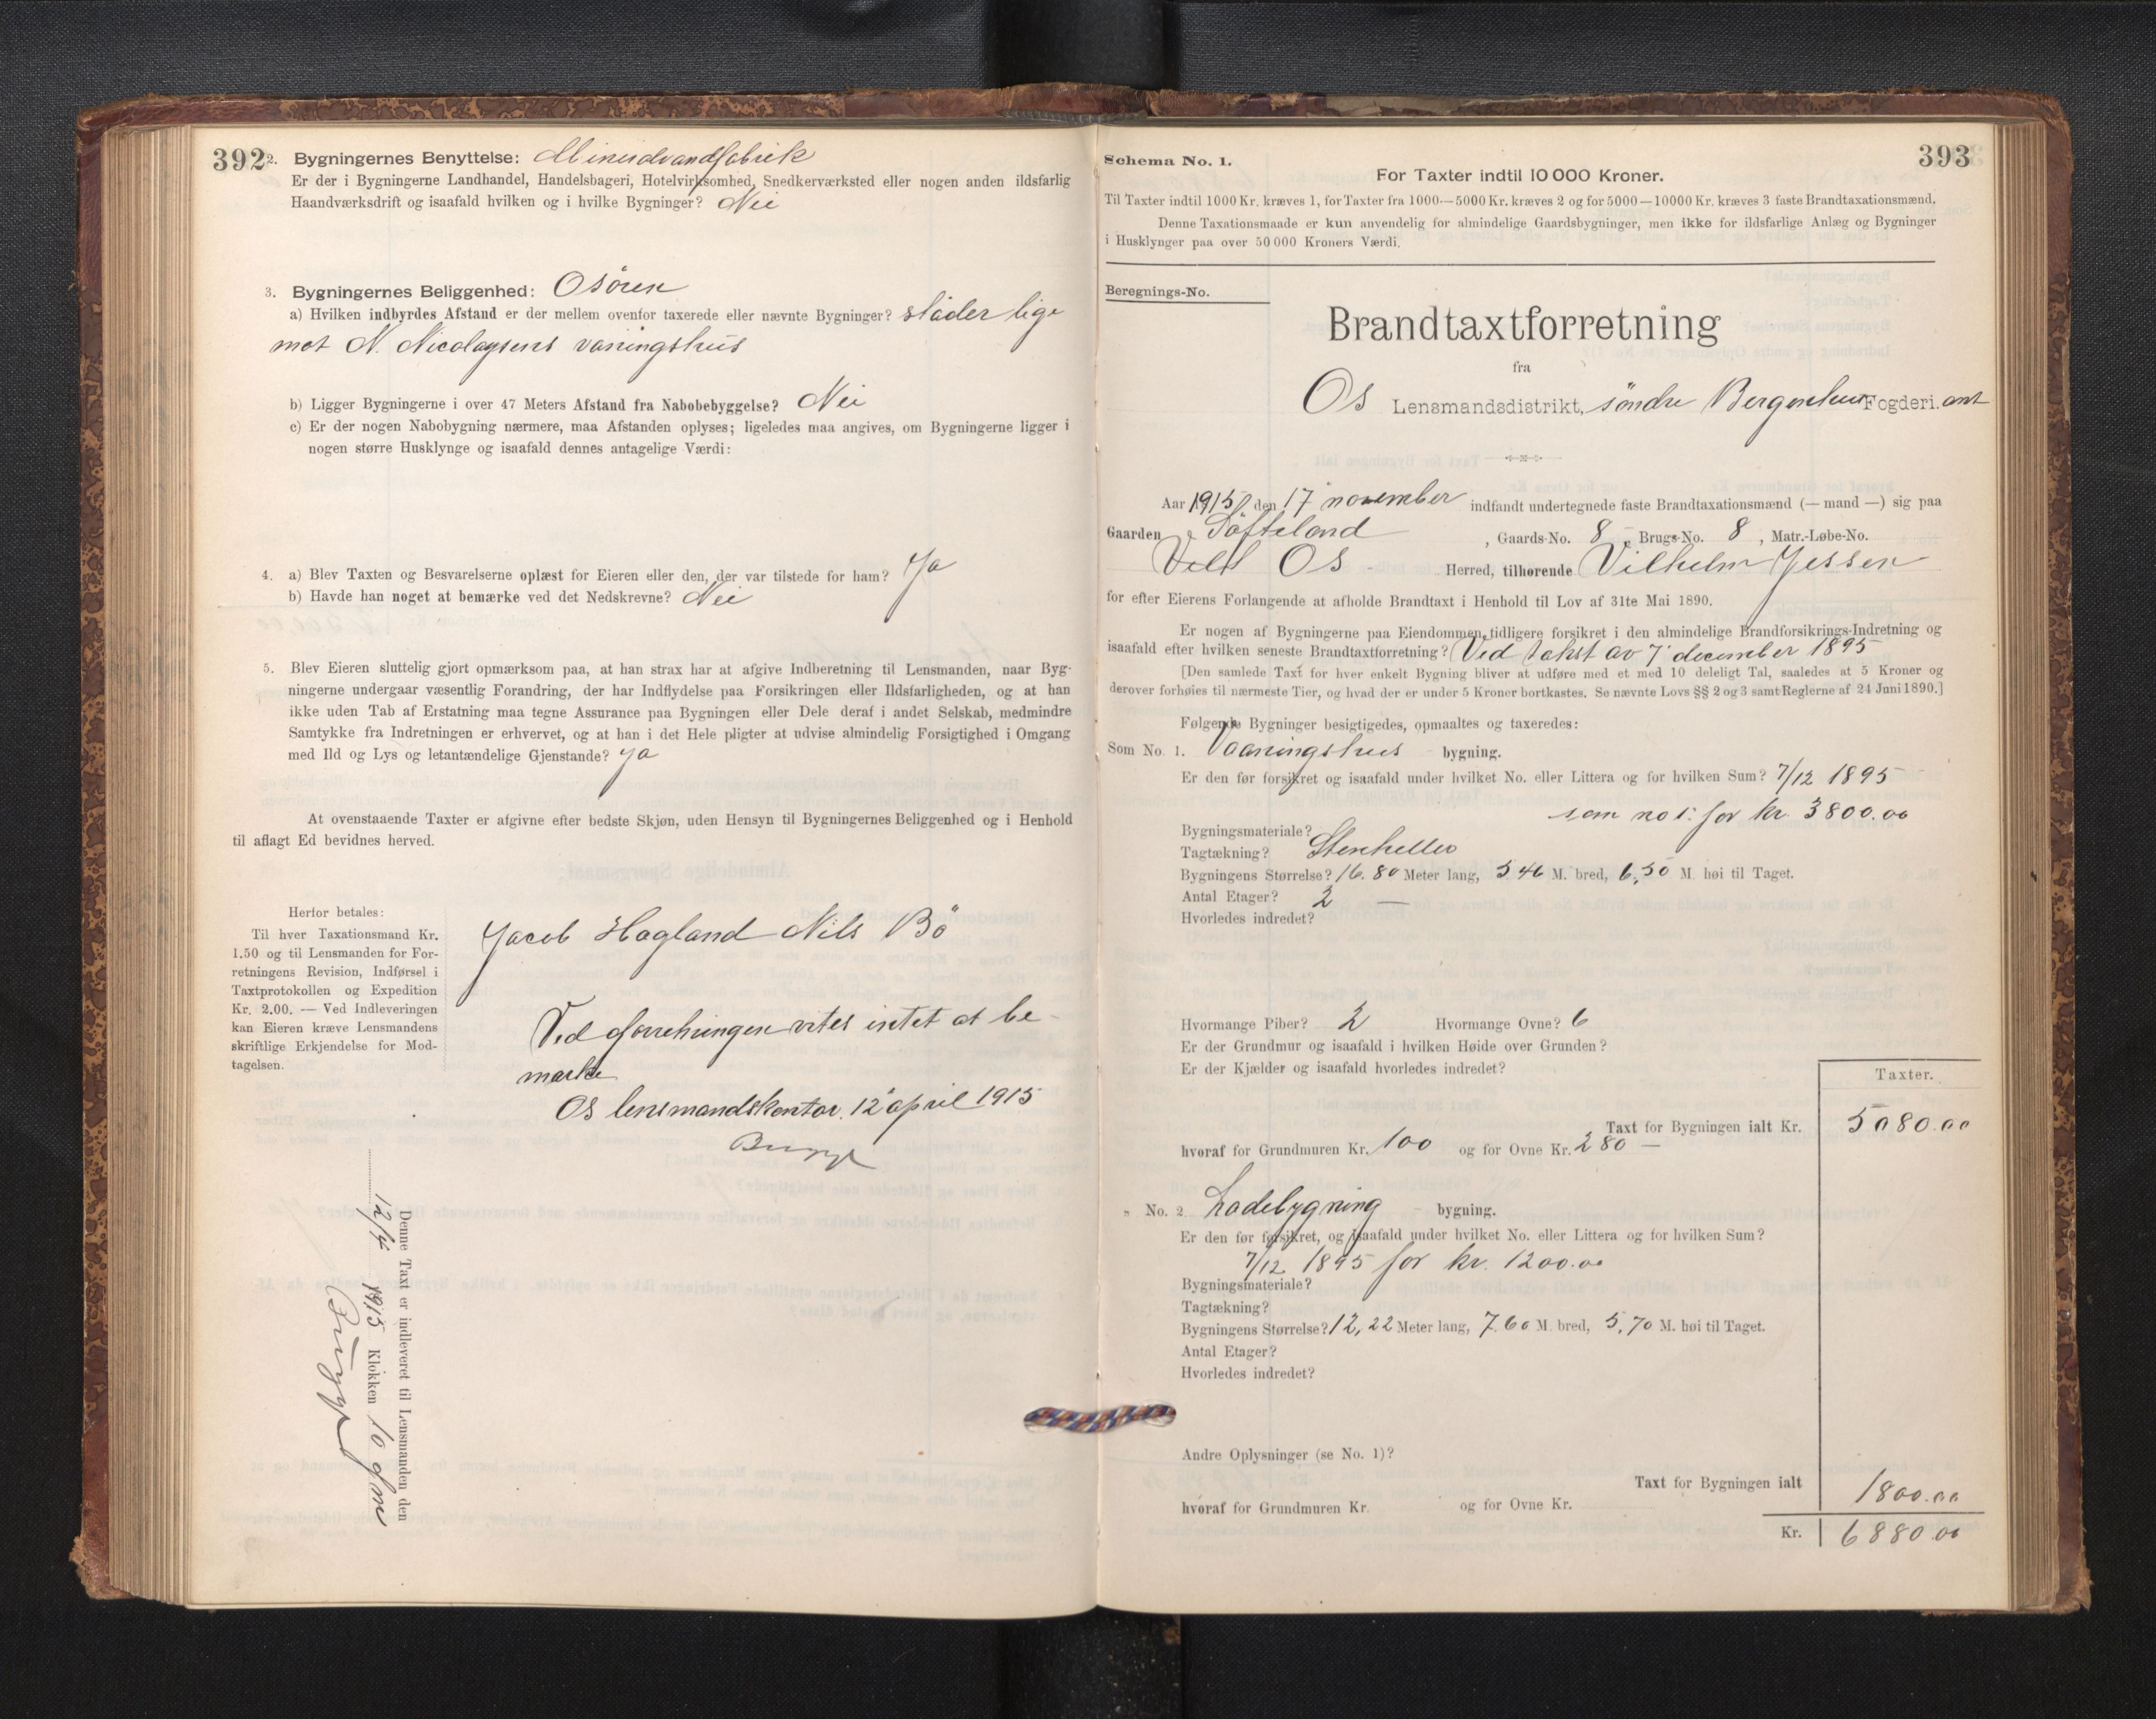 392
2. Bygningernes Benyttelse: Mineralvandfabrik
Er der i Bygningerne Landhandel, Handelsbageri, Hotelvirksomhed, Snedkerværksted eller nogen anden ildsfarlig
Haandværksdrift og isaafald hvilken og i hvilke Bygninger? Nei
3. Bygningernes Beliggenhed: Osören
a) Hvilken indbyrdes Afstand er der mellem ovenfor taxerede eller nævnte Bygninger? stader lige
mot N. Nicolaysens vaningshus
b) Ligger Bygningerne i over 47 Meters Afstand fra Nabobebyggelse? Nei
c) Er der nogen Nabobygning nærmere, maa Afstanden oplyses; ligeledes maa angives, om Bygningerne ligger i
nogen større Husklynge og isaafald dennes antagelige Værdi:
4. a) Blev Taxten og Besvarelserne oplæst for Eieren eller den, der var tilstede for ham? Ja
b) Havde han noget at bemærke ved det Nedskrevne? Nei
5. Blev Eieren sluttelig gjort opmærksom paa, at han strax har at afgive Indberetning til Lensmanden, naar Byg-
ningerne undergaar væsentlig Forandring, der har Indflydelse paa Forsikringen eller Ildsfarligheden, og at han
ikke uden Tab af Erstatning maa tegne Assurance paa Bygningen eller Dele deraf i andet Selskab, medmindre
Samtykke fra Indretningen er erhvervet, og at han i det Hele pligter at udvise almindelig Forsigtighed i Omgang
med Ild og Lys og letantændelige Gjenstande? Ja
At ovenstaaende Taxter er afgivne efter bedste Skjøn, uden Hensyn til Bygningernes Beliggenhed og i Henhold
til aflagt Ed bevidnes herved.
Herfor betales:
Til hver Taxationsmand Kr.
1.50 og til Lensmanden for For-
retningens Revision, Indførsel i
Taxtprotokollen og Expedition
Kr. 2.00. — Ved Indleveringen
kan Eieren kræve Lensmandens
skriftlige Erkjendelse for Mod-
tagelsen.
Jacob Hagland Nils Bö
Ved forretningen vites intet at be-
marke
Os lensmandskontor. 12 april 1915
Denne Taxt er indleveret til Lensmanden den
12/4 1915 Klokken 10 fm
393
Schema No. 1.
For Taxter indtil 10 000 Kroner.
Til Taxter indtil 1000 Kr. kræves 1, for Taxter fra 1000—5000 Kr. kræves 2 og for 5000—10000 Kr. kræves 3 faste Brandtaxationsmænd.
Denne Taxationsmaade er kun anvendelig for almindelige Gaardsbygninger, men ikke for ildsfarlige Anlæg og Bygninger
i Husklynger paa over 50 000 Kroners Værdi.
Beregnings-No.
Brandtaxtforretning
fra
Os Lensmandsdistrikt, söndre Bergenhus Fogderi. amt
Aar 1915, den 17 november indfandt undertegnede faste Brandtaxationsmænd (— mand —) sig paa
Gaarden Töfteland, Gaards-No. 8, Brugs-No. 8, Matr.-Løbe-No.
Os Herred, tilhørende Vilhelm Jessen
for efter Eierens Forlangende at afholde Brandtaxt i Henhold til Lov af 31te Mai 1890.
Er nogen af Bygningerne paa Eiendommen tidligere forsikret i den almindelige Brandforsikrings-Indretning og
isaafald efter hvilken seneste Brandtaxtforretning? Ved takst av 7 december 1895
[Den samlede Taxt for hver enkelt Bygning bliver at udføre med et med 10 deleligt Tal, saaledes at 5 Kroner og
derover forhøies til nærmeste Tier, og hvad der er under 5 Kroner bortkastes. Se nævnte Lovs §§ 2 og 3 samt Reglerne af 24 Juni 1890.]
Følgende Bygninger besigtigedes, opmaaltes og taxeredes:
Som No. 1. Vaaningshus bygning.
Er den før forsikret og isaafald under hvilket No. eller Littera og for hvilken Sum? 7/12 1895
som no 1. for kr. 3800.00
Bygningsmateriale?
Tagtækning? Stenheller
Bygningens Størrelse? 16.80 Meter lang, 5 46 M. bred, 6,50 M. høi til Taget.
Antal Etager? 2 —
Hvorledes indredet?
Hvormange Piber? 2 Hvormange Ovne? 6
Er der Grundmur og isaafald i hvilken Høide over Grunden?
Er der Kjælder og isaafald hvorledes indredet?
Taxter.
Taxt for Bygningen ialt Kr. 5080.00
hvoraf for Grundmuren Kr. 100 og for Ovne Kr. 280 —
„ No. 2 Ladebygning bygning.
Er den før forsikret, og isaafald under hvilket No. eller Littera og for hvilken Sum?
7/12 1895 for kr. 1200.00
Bygningsmateriale?
Tagtækning?
Bygningens Størrelse? 12,22 Meter lang, 7.60 M. bred, 5,70 M. høi til Taget.
Antal Etager?
Hvorledes indredet?
Andre Oplysninger (se No. 1)?
Taxt for Bygningen ialt 1800.00
hvoraf for Grundmuren Kr. og for Ovne Kr.
Kr. 6880.00